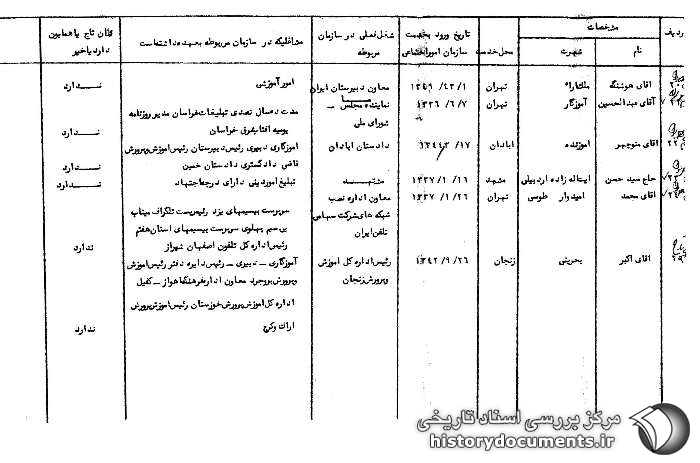 ردیف
مشخصات
نام
شهرت
محل خدمت
تاریخ ورود بخدمت
سازمان امور اجتماعی
شغل فعلی در سازمان
مربوطه
مشاغلیکه در سازمان مربوطه بعهده داشته است
نشان تاج یا همایون
دارد یا خیر
آقای هوشنگ تهران معاون دبیرستان ایران امور آموزشی ندارد
آقای عبدالحسین آموزگار تهران ۱۳۳۶/۶/۷ نماینده مجلس
شورای ملی
مدت ده سال تصدی تبلیغات خراسان مدیر روزنامه
یومیه آفتاب شرق خراسان ندارد
آقای منوچهر آموزنده آبادان دادستان آبادان
آموزگاری دبیری رئیس دبیرستان رئیس آموزش و پرورش
قاضی دادگستری دادستان خمین ندارد
حاج سید حسن زاده اردبیلی مشهد ۱۳۳۷/۱/۱۶ مجتهد تبلیغ امور دینی دارای درجه اجتهاد ندارد
آقای محمد امیدوار طوسی تهران ۱۳۳۷/۱/۲۶ معاون اداره نصب
شبکه های شرکت سهامی
تلفن ایران
سرپرست بیسیمهای یزد رئیس پست تلگراف میناب
بی سیم پهلوی سرپرست بیسیمهای استان هفتم
رئیس اداره کل تلفون اصفهان شیراز ندارد
آقای اکبر بحرینی زنجان ۱۳۴۲/۹/۲۶ رئیس اداره کل آموزش
و پرورش زنجان
آموزگاری – دبیری – رئیس دایره دفتر رئیس آموزش
و پرورش بروجرد معاون اداره فرهنگ اهواز – کفیل
اداره کل آموزش پرورش خوزستان رئیس آموزش پرورش
اراک و کرج ندارد
مرکز بررسی اسناد تاریخی
historydocuments.ir